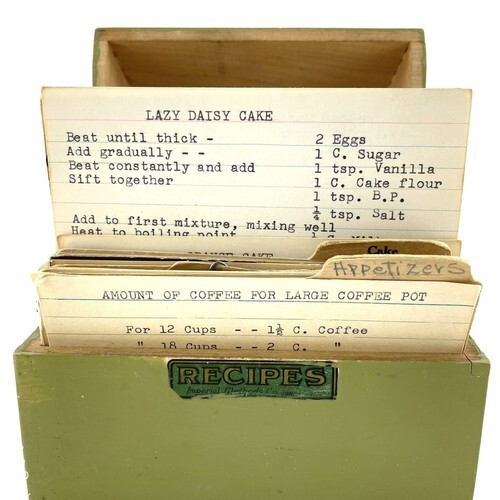 LAZY DAISY CAKE
Beat until thick - 2 Eggs
Add gradually - - 1 C. Sugar
Beat constantly and add 1 tsp. Vanilla
Sift together 1 C. Cake flour
1 tsp. B.P.
¼ tsp. Salt
Add to first mixture, mixing well
Heat to boiling point
CAKE
Cake
Appetizers
AMOUNT OF COFFEE FOR LARGE COFFEE POT
For 12 Cups - - 1⅛ C. Coffee
" 18 Cups - - 2 C. "
RECIPES
Imperial Methods Co.